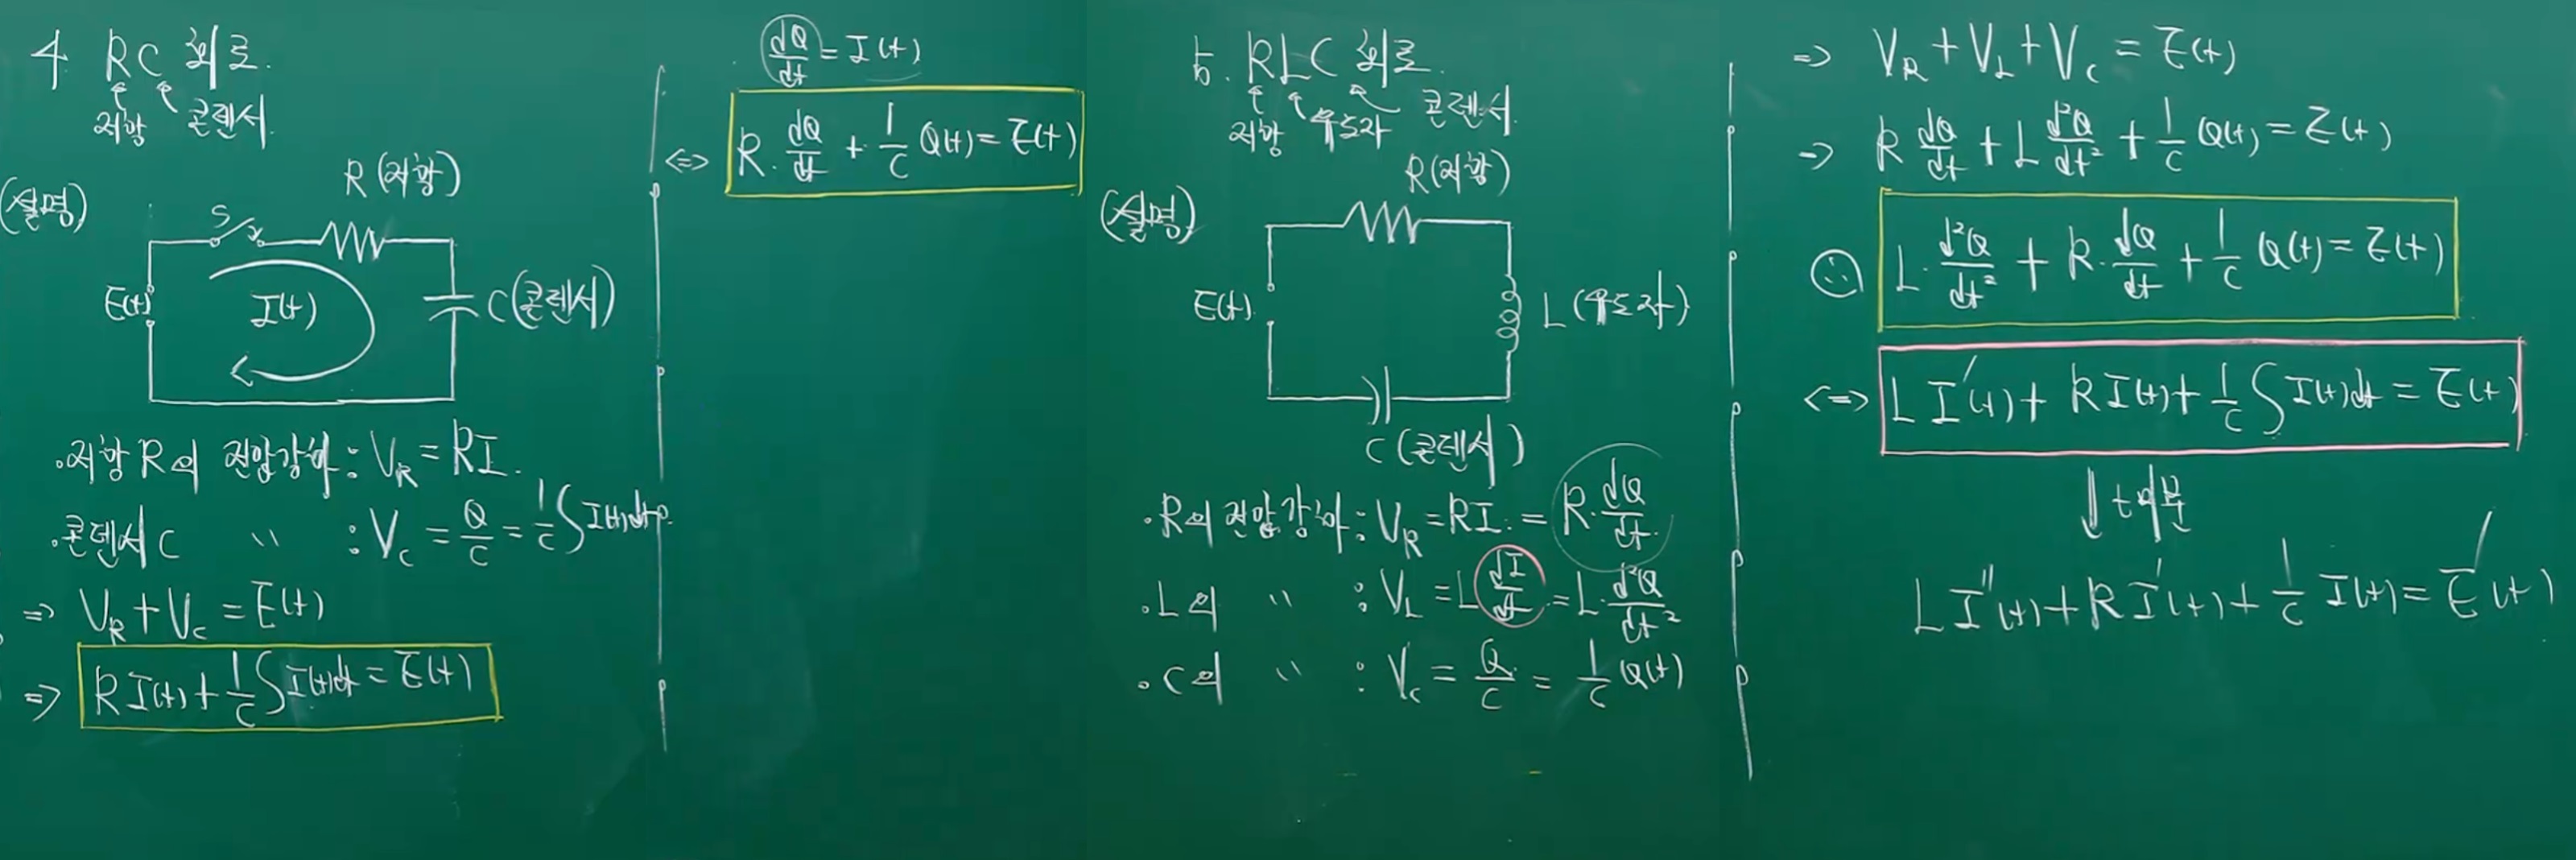 4 RC 회로.
저항 콘덴서
(설명)
R (저항)
S
E(t)
I(t)
C (콘덴서)
·저항 R의 전압강하 : V_R = RI.
·콘덴서 C 〃 : V_C = Q/C = 1/C ∫I(t)dt
⇒ V_R + V_C = E(t)
⇒ RI(t) + 1/C ∫I(t)dt = E(t)
dQ/dt = I(t)
⇔ R · dQ/dt + 1/C Q(t) = E(t)
5. RLC 회로.
저항 유도자 콘덴서
(설명)
R(저항)
E(t)
L (유도자)
C (콘덴서)
·R의 전압강하 : V_R = RI. = R · dQ/dt.
·L의 〃 : V_L = L dI/dt = L · d²Q/dt²
·C의 〃 : V_C = Q/C = 1/C Q(t)
⇒ V_R + V_L + V_C = E(t)
⇒ R dQ/dt + L d²Q/dt² + 1/C Q(t) = E(t)
∴ L · d²Q/dt² + R · dQ/dt + 1/C Q(t) = E(t)
⇔ L I'(t) + RI(t) + 1/C ∫I(t)dt = E(t)
↓ t미분
L I''(t) + R I'(t) + 1/C I(t) = E'(t)